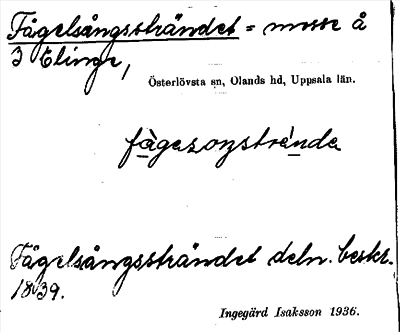 Fågelsångssträndet = mosse å
3 Elinge,
Österlövsta sn, Olands hd, Uppsala län.
fågelsångstrända
Fågelsångssträndet deln. beskr.
1839.
Ingegärd Isaksson 1936.